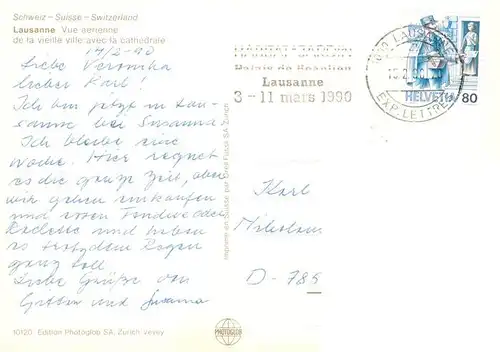 Schweiz - Suisse - Switzerland
Lausanne Vue aérienne
de la vieille ville avec la cathédrale
14/2-90
Liebe Veronika
lieber Karl!
Ich bin jetzt in Lau-
sanne bei Susanna
Ich bleibe eine
Woche. Hier regnet
es die ganze Zeit, aber
wir gehen einkaufen
und essen und
und haben
es trotzdem Regen
ganz toll
Liebe Grüße von
und Susanna
10120 Edition Photoglob SA, Zürich Vevey
Imprimé en Suisse par Orell Füssli SA Zürich
Palais de Beaulieu
Lausanne
3 - 11 mars 1990
LAUSANNE
EXP. LETTRES
HELVETIA 80
Karl
D-785
PHOTOGLOB